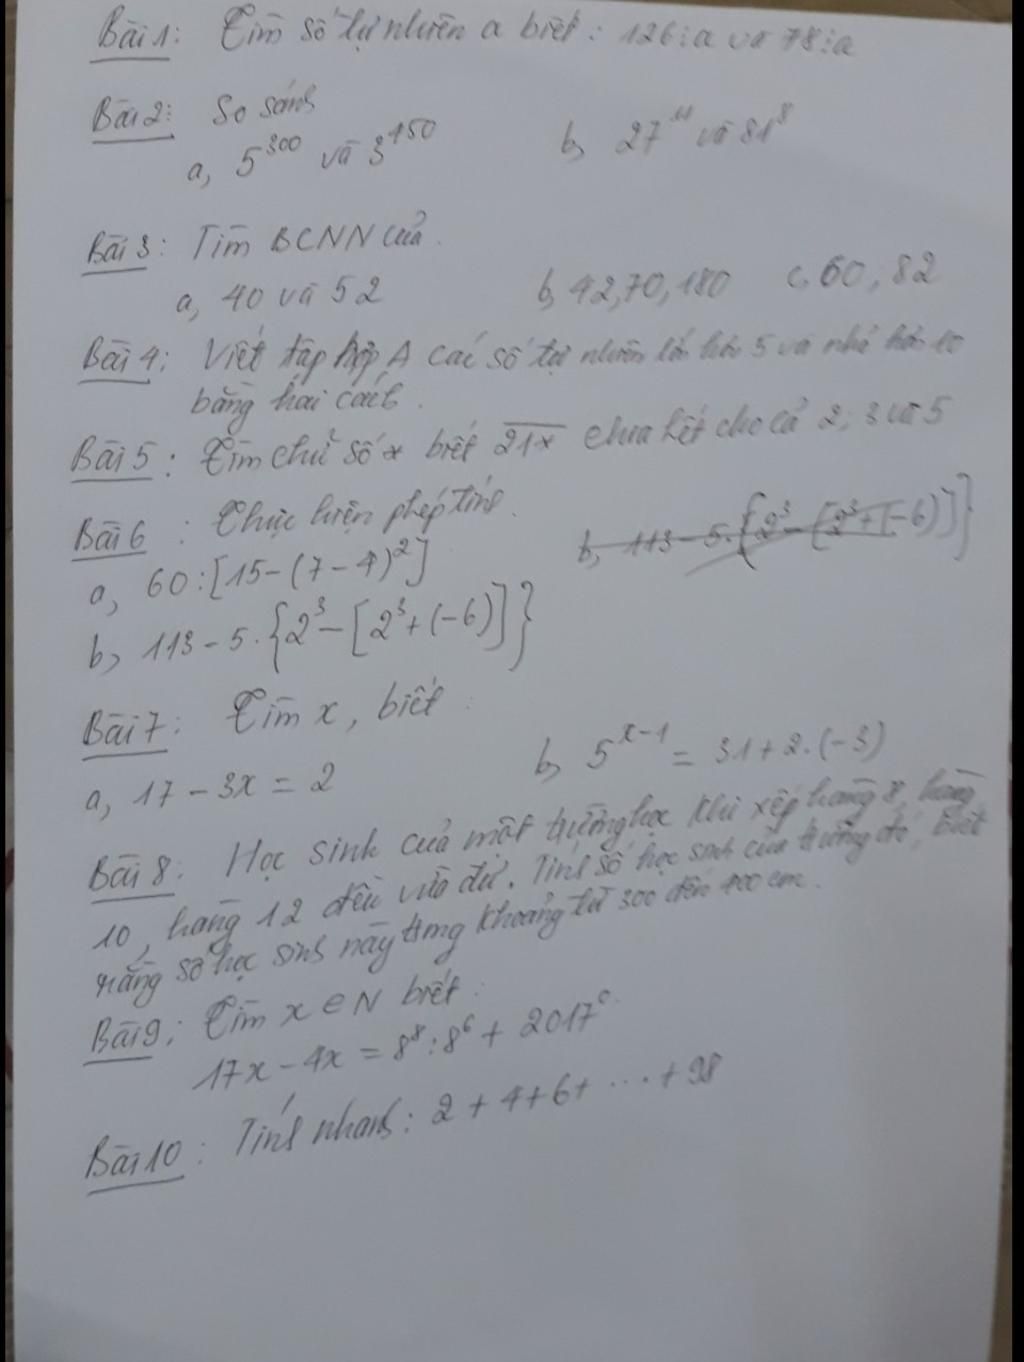 Bài 1: Tìm số tự nhiên a biết: 126⋮a và 78⋮a
Bài 2: So sánh
a, 5^300 và 3^450 b, 27^11 và 81^8
Bài 3: Tìm BCNN của.
a, 40 và 52 b, 42,70,180 c, 60, 82
Bài 4: Viết tập hợp A các số tự nhiên lớn hơn 5 và nhỏ hơn 10
bằng hai cách.
Bài 5: Tìm chữ số x biết 21x chia hết cho cả 2; 3 và 5
Bài 6: Thực hiện phép tính.
a, 60:[15-(7-4)^2] b, 113-5.{2^3-[2^3+(-6)]}
b, 113-5.{2^3-[2^3+(-6)]}
Bài 7: Tìm x, biết:
a, 17-3x=2 b, 5^x-1 = 31+2.(-3)
Bài 8: Học sinh của một trường học khi xếp hàng 8, hàng
10, hàng 12 đều vừa đủ. Tính số học sinh của trường đó, biết
rằng số học sinh này trong khoảng từ 300 đến 400 em.
Bài 9: Tìm x ∈ N biết:
17x-4x = 8^8:8^6 + 2017^0.
Bài 10: Tính nhanh: 2+4+6+...+98